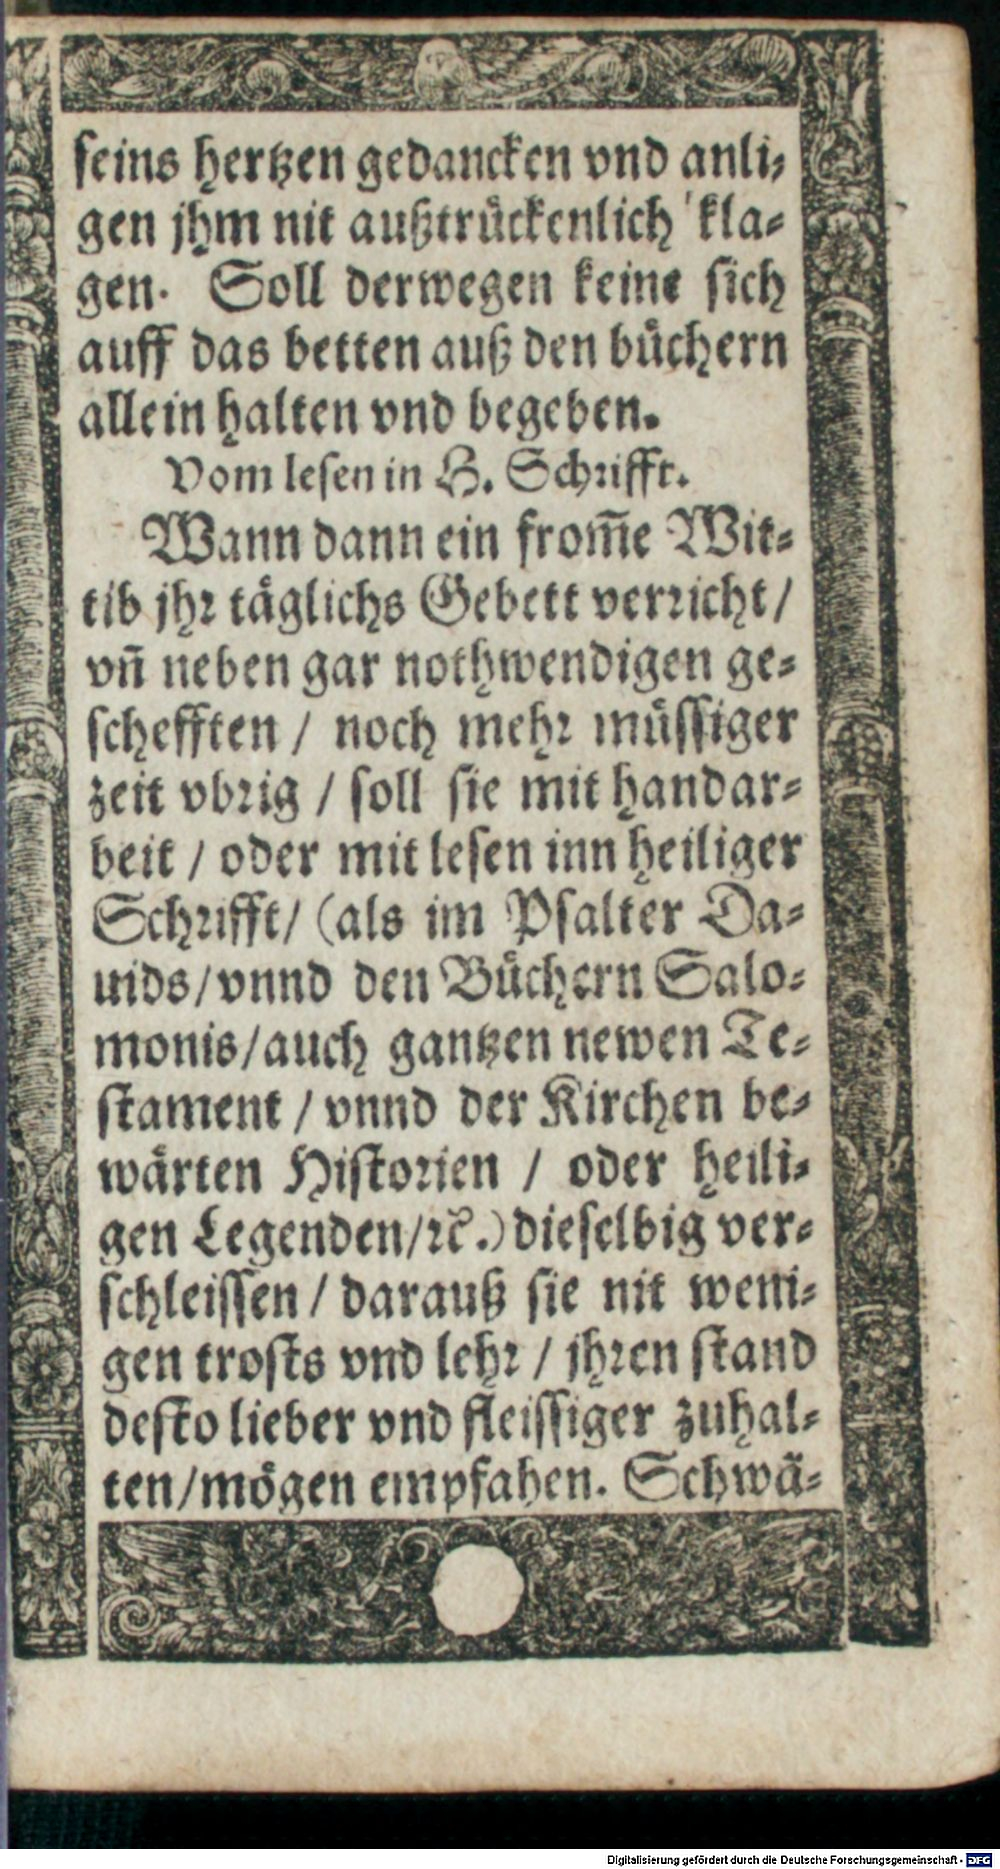 seins hertzen gedancken vnd anli-
gen jhm nit außtrückenlich kla-
gen. Soll derwegen keine sich
auff das betten auß den büchern
allein halten vnd begeben.
Vom lesen in H. Schrifft.
Wann dann ein from̃e Wit-
tib jhr täglichs Gebett verricht/
vñ neben gar nothwendigen ge-
schefften / noch mehr müssiger
zeit vbrig / soll sie mit handar-
beit / oder mit lesen inn heiliger
Schrifft/ (als im Psalter Da-
uids/vnnd den Büchern Salo-
monis/auch gantzen newen Te-
stament / vnnd der Kirchen be-
wärten Historien / oder heili-
gen Legenden/ꝛc̃.) dieselbig ver-
schleissen / darauß sie nit weni-
gen trosts vnd lehr / jhren stand
desto lieber vnd fleissiger zuhal-
ten/mögen empfahen. Schwä-
Digitalisierung gefördert durch die Deutsche Forschungsgemeinschaft - DFG